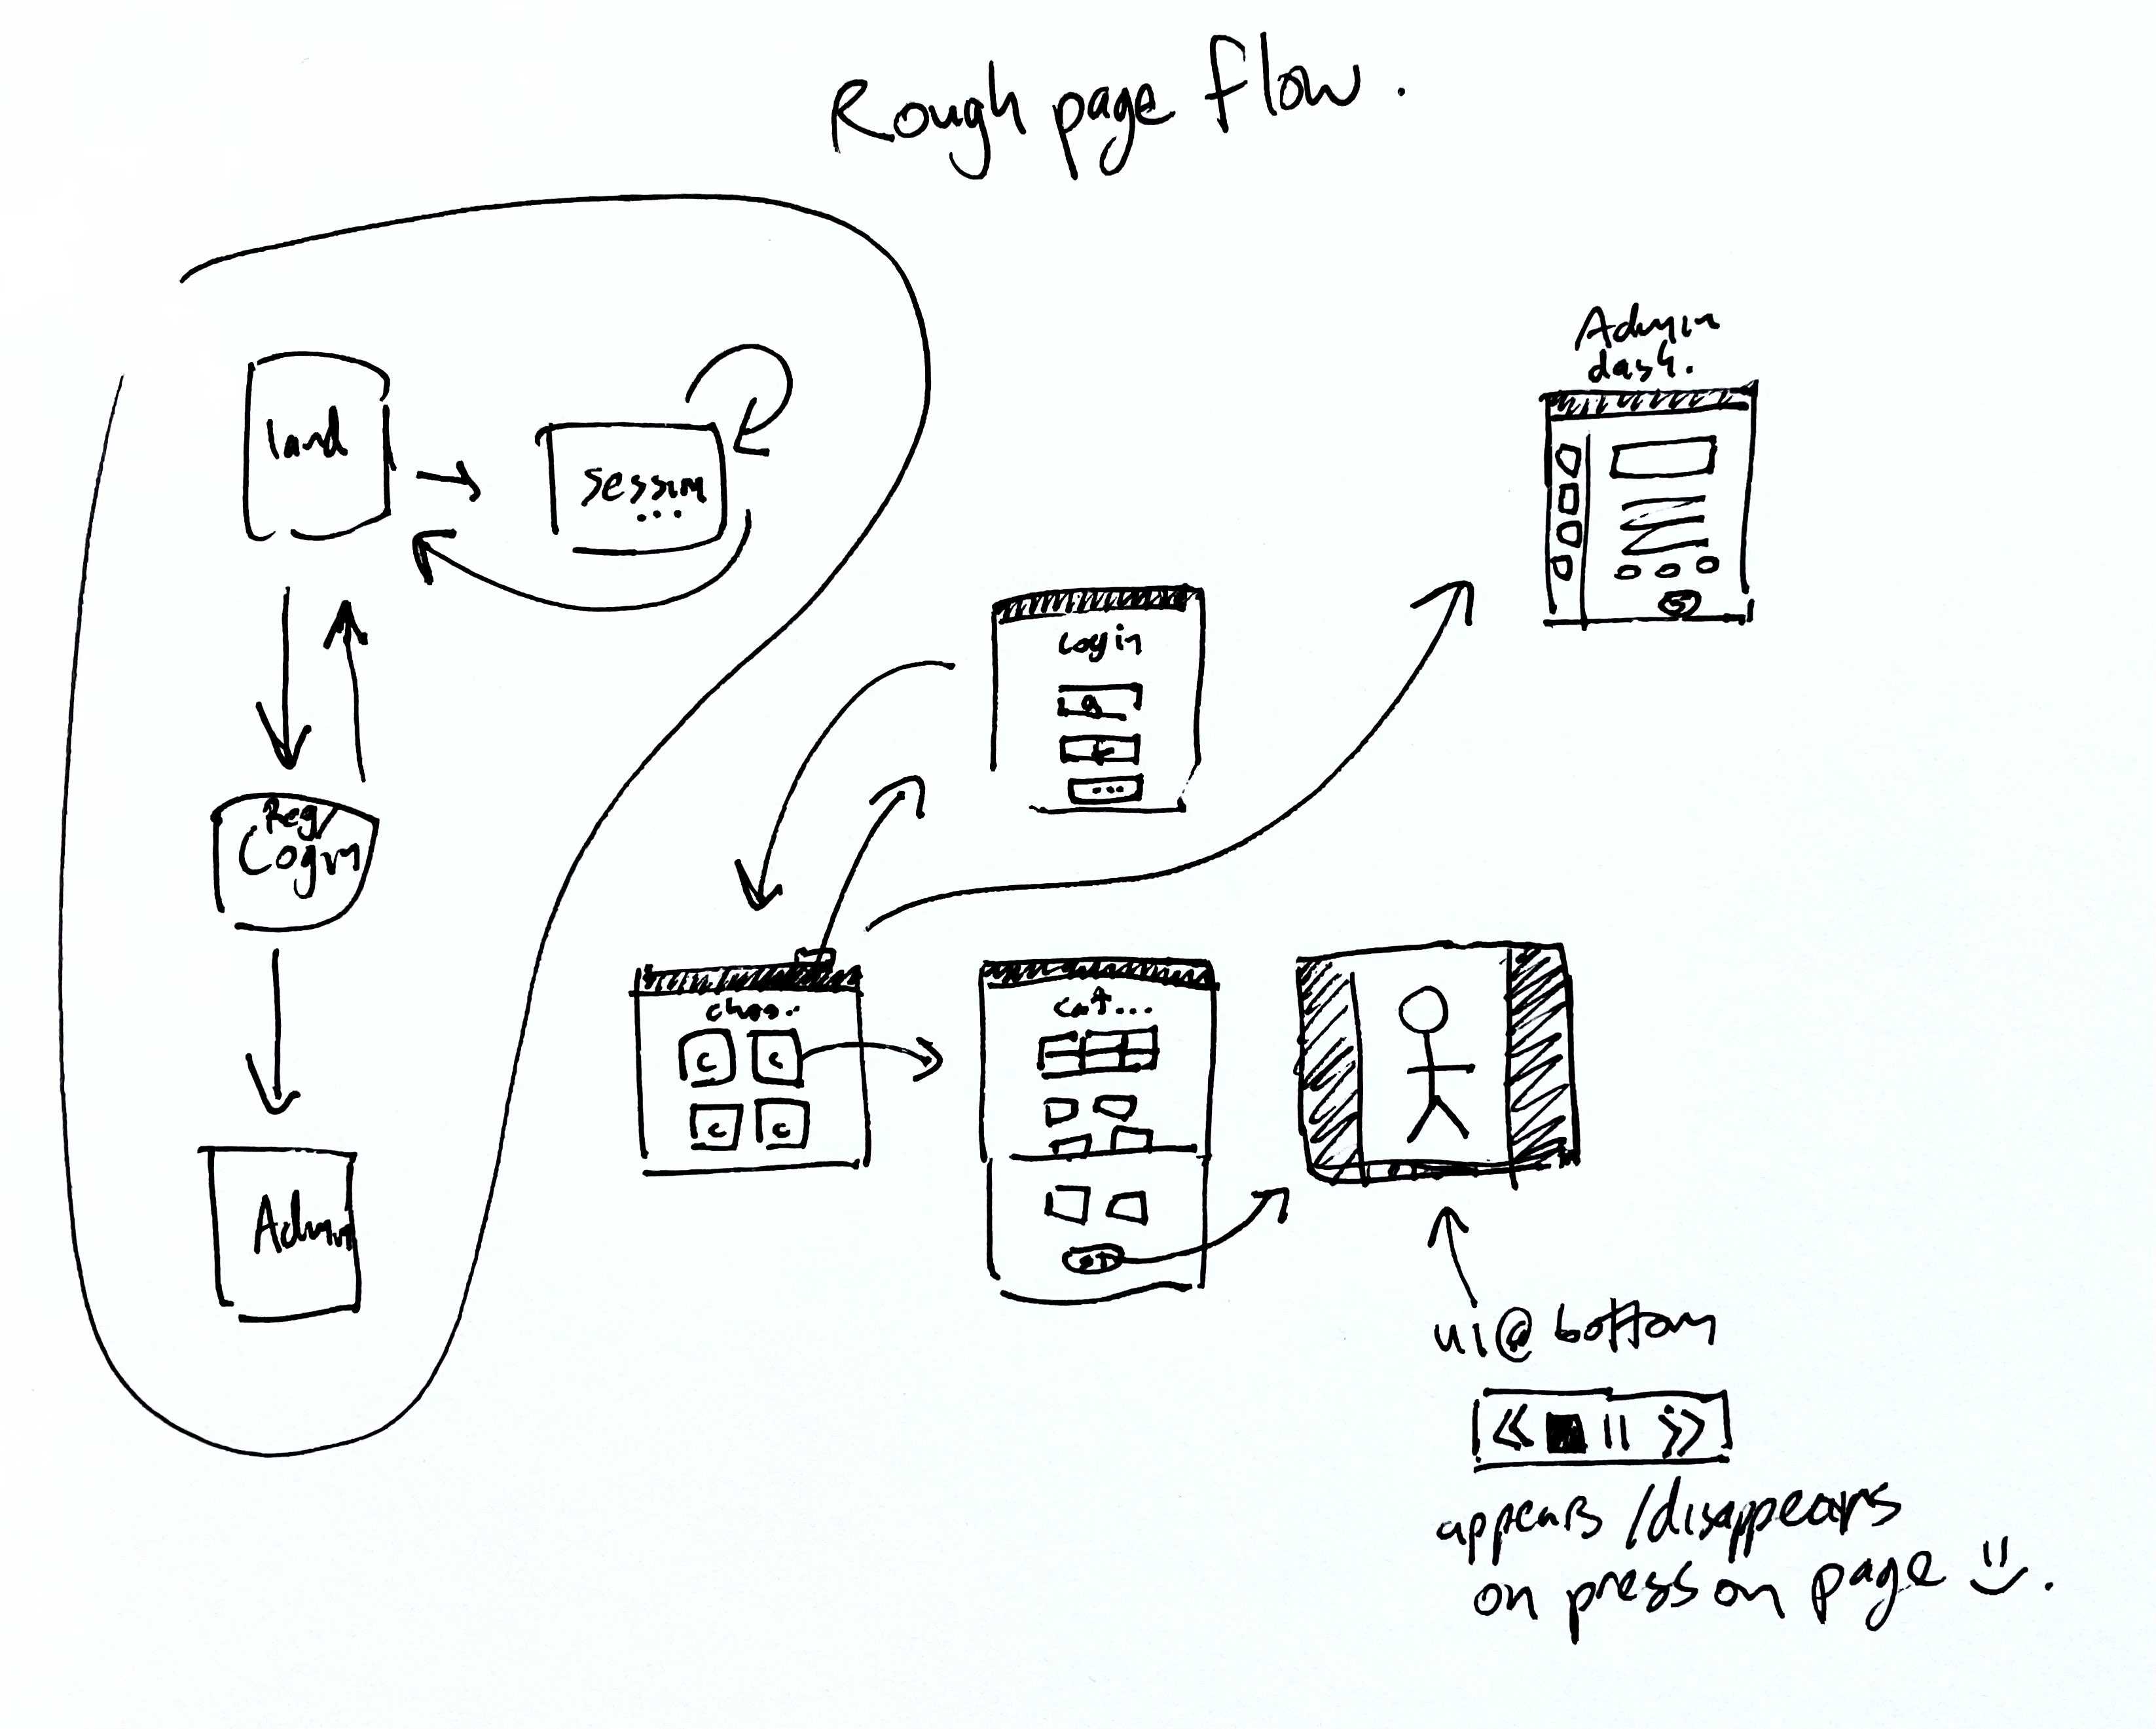 Rough page flow.
land
session
...
Reg/
Login
Admin
Login
...
Admin
dash.
choo..
c
c
c
c
cat...
ui@bottom
appears/disappears
on press on page